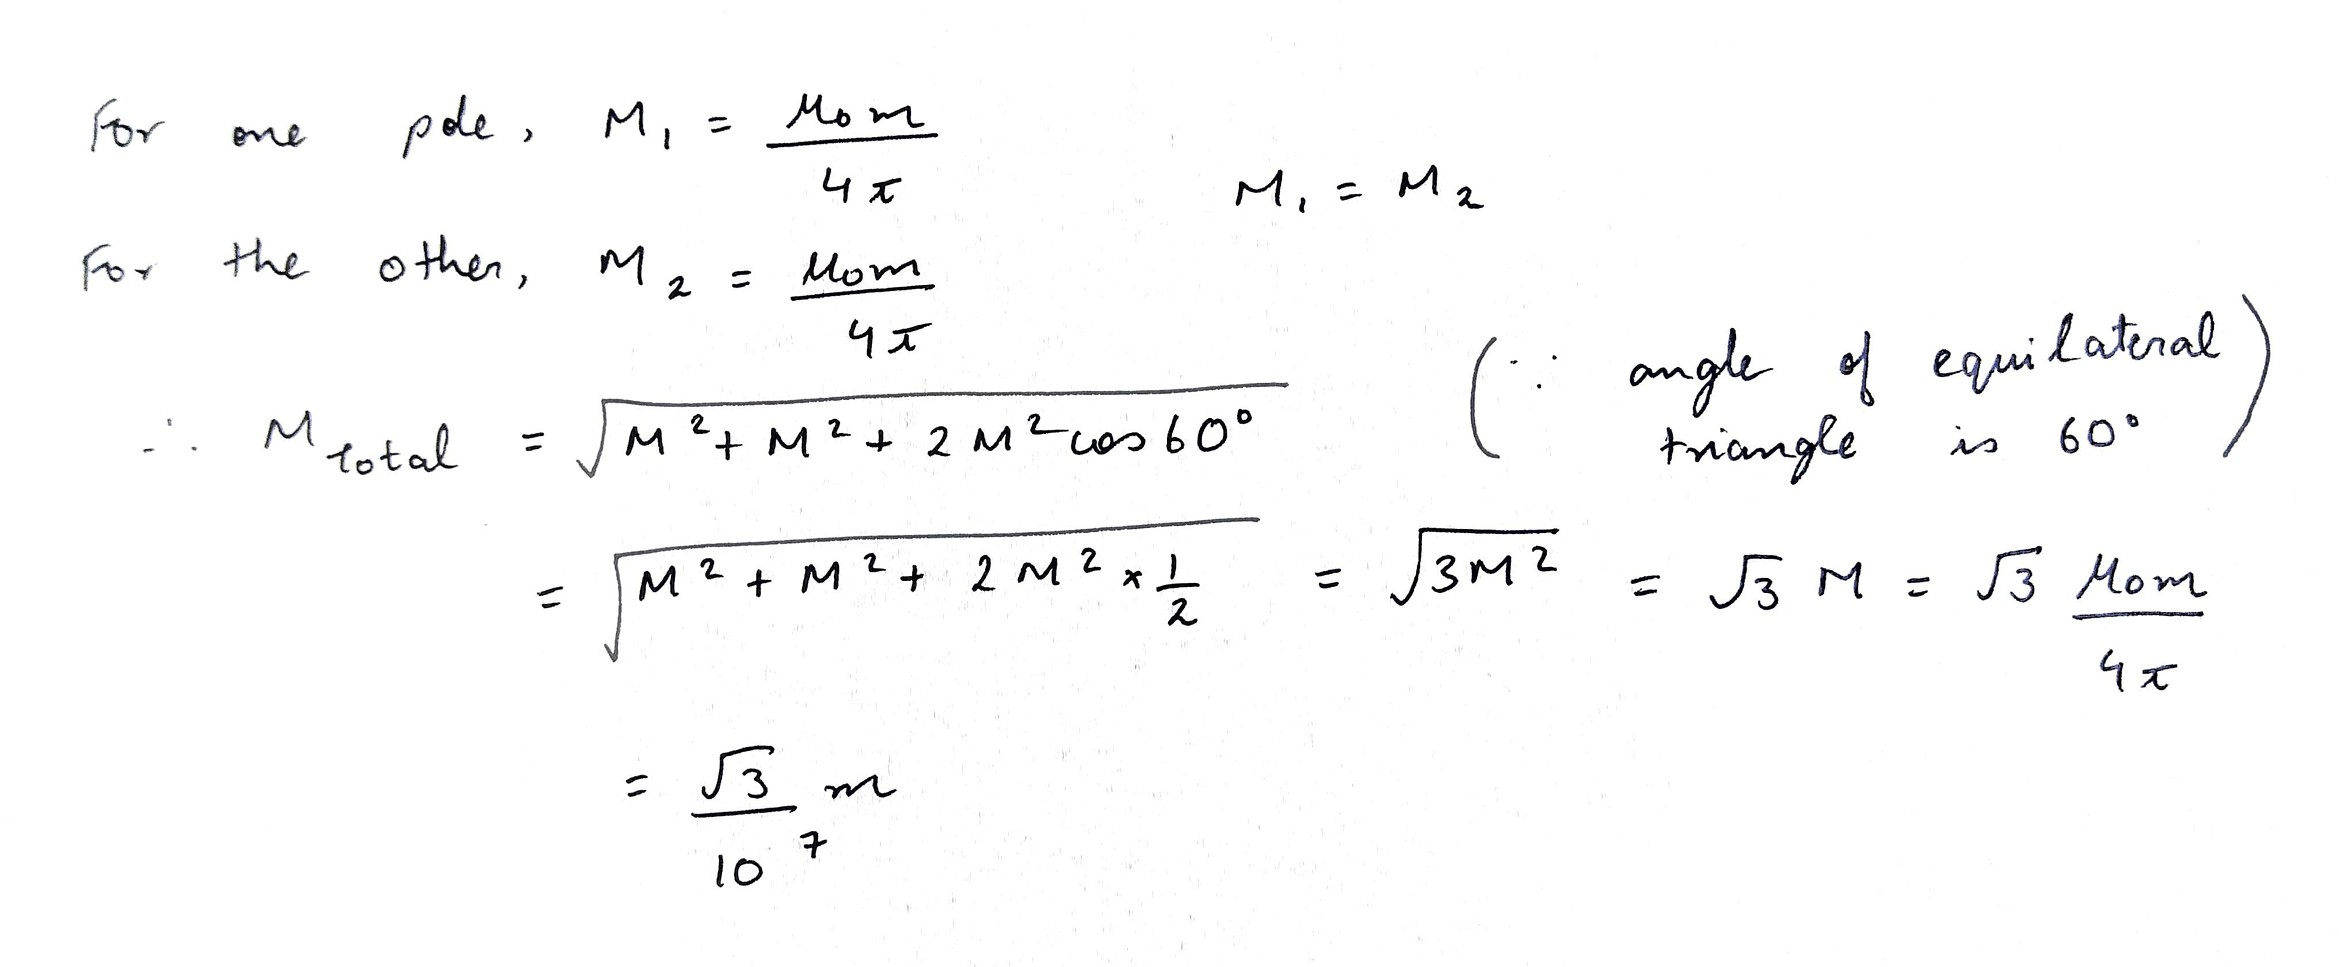 For one pole, M₁ = μ₀m / 4π
M₁ = M₂
For the other, M₂ = μ₀m / 4π
∴ M total = √(M² + M² + 2M² cos 60°) (∵ angle of equilateral triangle is 60°)
= √(M² + M² + 2M² × 1/2) = √(3M²) = √3 M = √3 μ₀m / 4π
= √3 / 10⁷ m